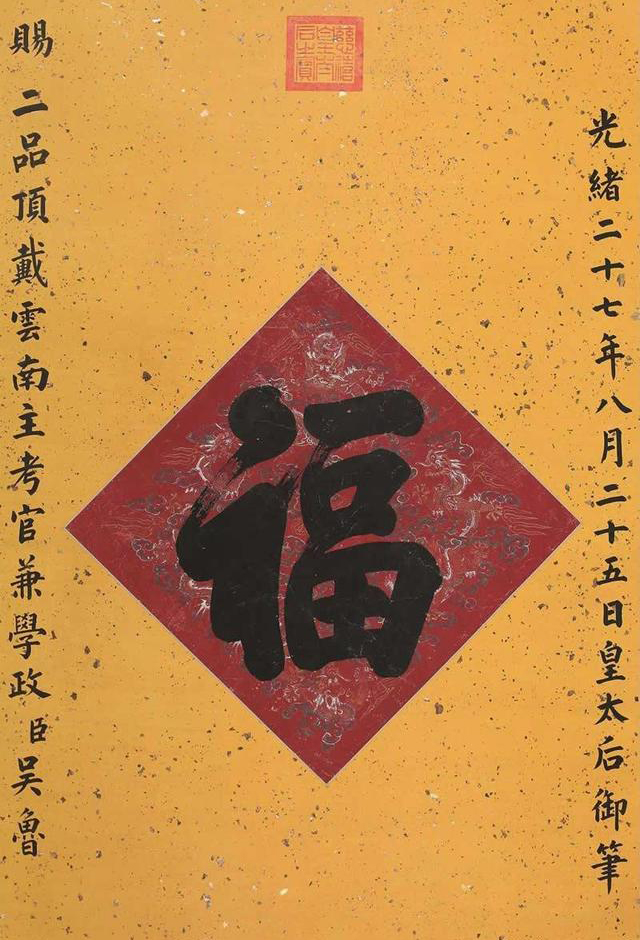 光緒二十七年八月二十五日皇太后御筆
慈禧皇太后之寶
福
賜二品頂戴雲南主考官兼學政臣吳魯